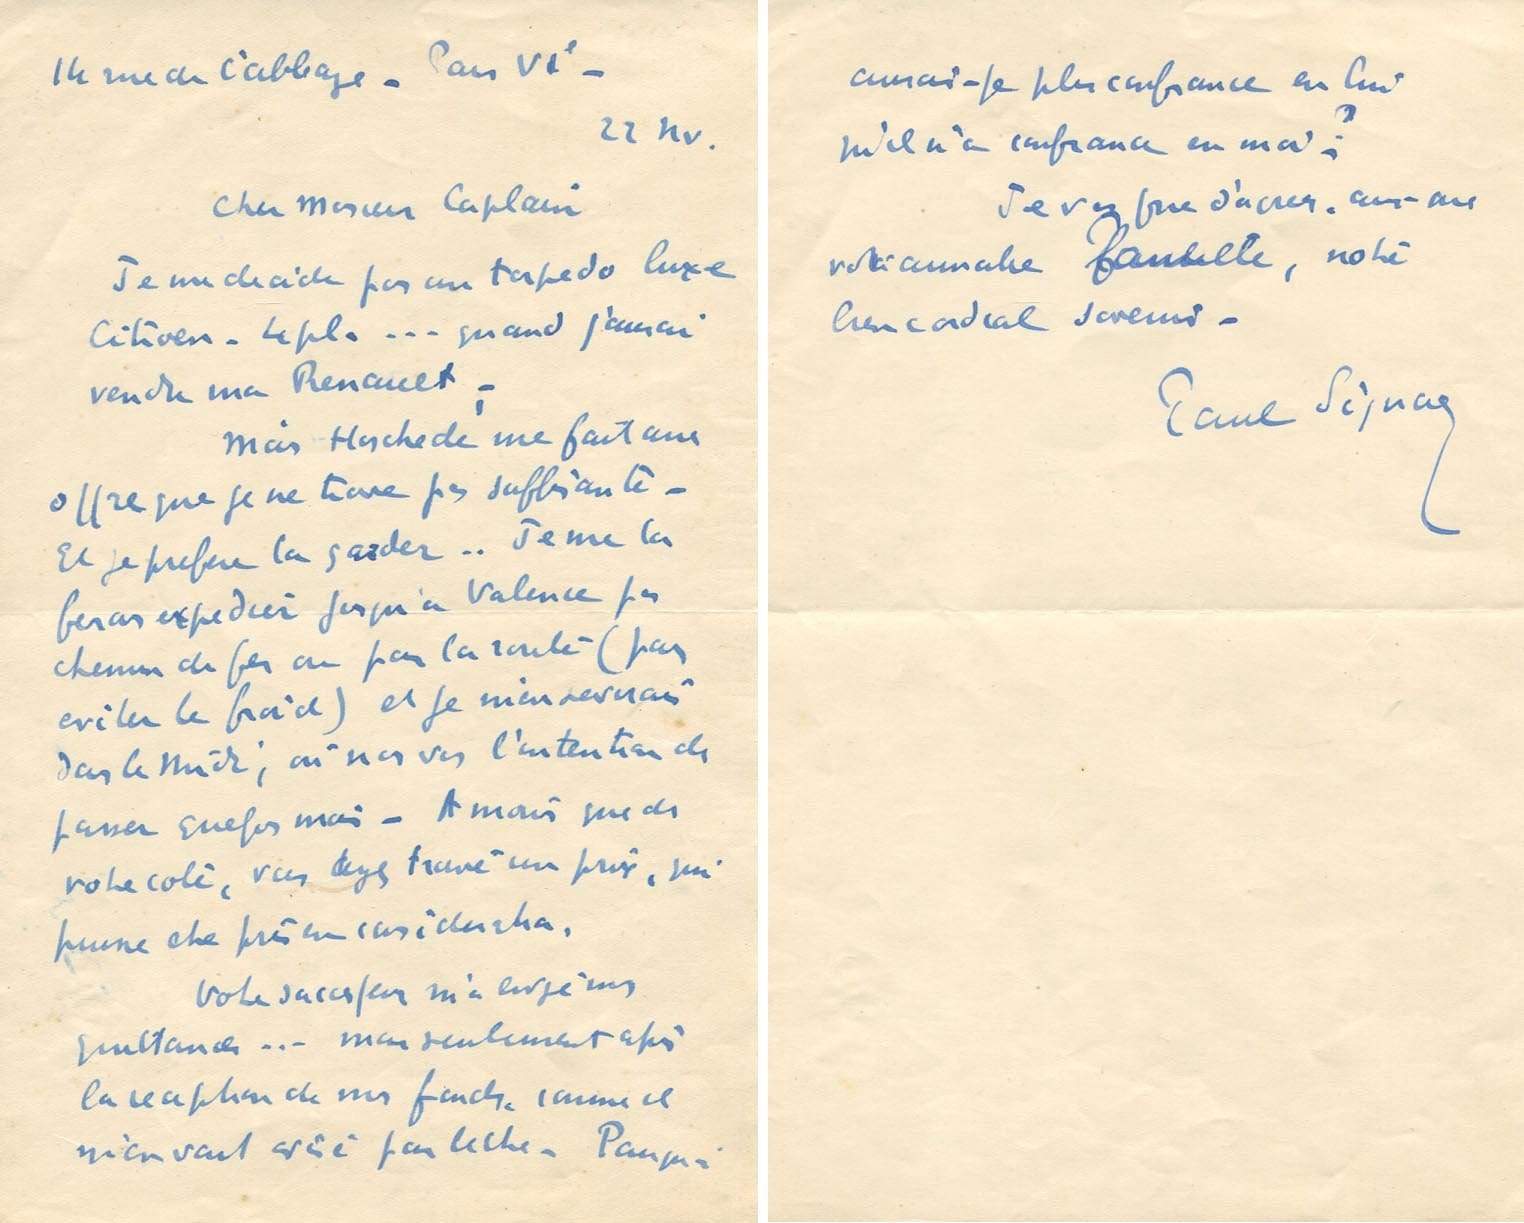 14 rue de l'abbaye - Paris VIe -
22 Nov.
Cher Monsieur Caplain
Je me decide pour une torpedo luxe
Citroen - 4 pl. --- quand j'aurai
vendu ma Renault -
Mais Hoschedé me fait une
offre que je ne trouve pas suffisante -
Et je prefere la garder .. Je me la
ferais expedier jusqu'a Valence par
chemin de fer ou par la route (pour
eviter le froid) et je m'en servirais
dans le Midi, où nous avons l'intention de
passer quelques mois - A moins que de
votre coté, vous ayez trouvé un prix, qui
puisse etre pris en consideration.
Votre successeur m'a envoyé mes
quittances --- mais seulement après
la reception de mes fonds, comme il
m'en avait avisé par lettre - Pourquoi
aurais-je plus confiance en lui
qu'il n'a confiance en moi ?
Je vous prie d'agreer, ainsi que
votre aimable famille, notre
bien cordial souvenir -
Paul Signac